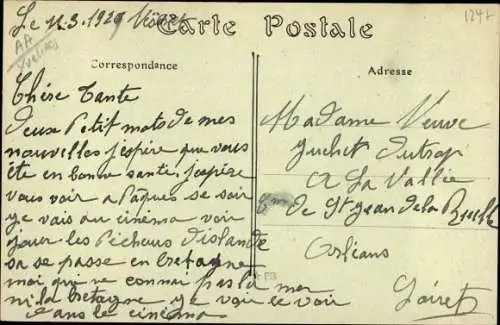 Le 11.3.1929
Carte Postale
1247
Correspondance
Adresse
Chère Tante
deux Petit mots de mes
nouvelles j'espère que vous
ête en bonne santé j'espère
vous voir a Pâques se soir
ye vais au cinéma voir
jouer les Pêcheurs d'islande
sa se passe en bretagne
moi qui ne connai pas la mer
ni la bretagne ye vais le voir
dans le cinéma
Madame Veuve
A La Vallée
de St Jean de la Ruelle
Orléans
Loiret